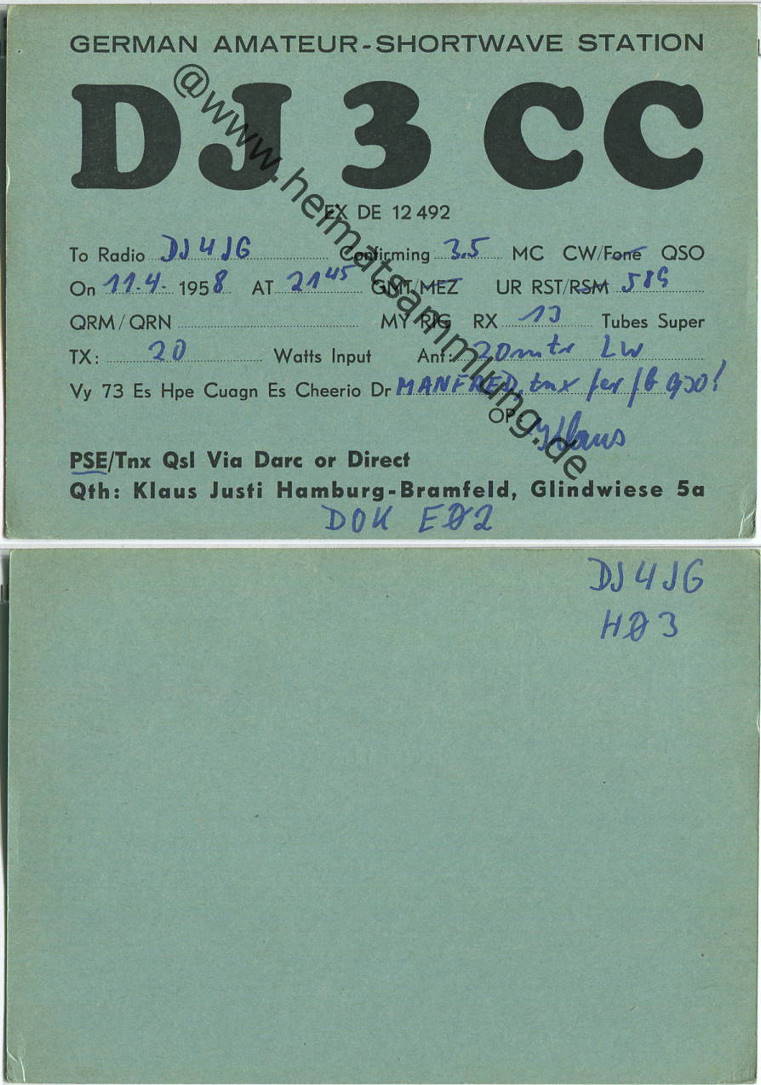 GERMAN AMATEUR-SHORTWAVE STATION
DJ 3 CC
EX DE 12 492
To Radio DJ4JG Confirming 3.5 MC CW/Fone QSO
On 11.4. 1958 AT 21 45 GMT/MEZ UR RST/RSM 589
QRM/QRN MY RIG RX 13 Tubes Super
TX: 20 Watts Input Ant: 20 mtr LW
Vy 73 Es Hpe Cuagn Es Cheerio Dr MANFRED, tnx fer fb QSO!
OP: Klaus
PSE/Tnx Qsl Via Darc or Direct
Qth: Klaus Justi Hamburg-Bramfeld, Glindwiese 5a
DOK EØ2
@www.heimatsammlung.de
DJ4JG
HØ3